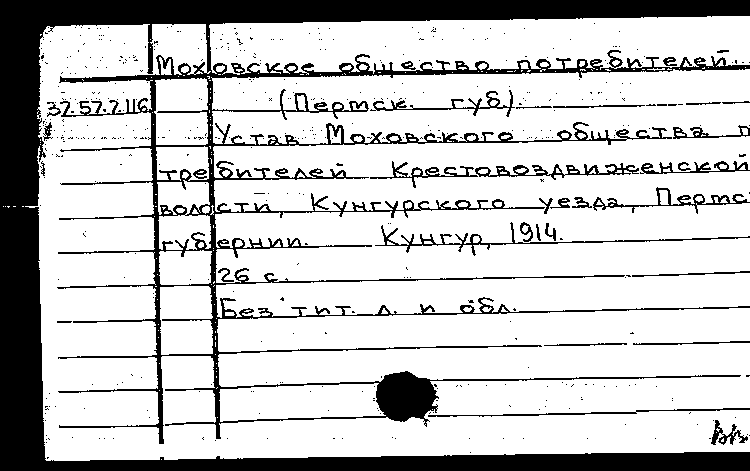 Моховское общество потребителей.
37.57.7.116 (Пермск. губ).
Устав Моховского общества п
требителей Крестовоздвиженской
волости, Кунгурского уезда, Пермс
губернии. Кунгур, 1914.
26 с.
Без тит. л. и обл.